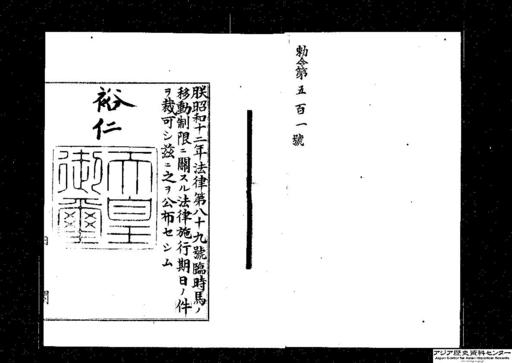 勅令第五百一號
朕昭和十二年法律第八十九號臨時馬ノ
移動制限ニ關スル法律施行期日ノ件
ヲ裁可シ茲ニ之ヲ公布セシム
裕仁
天皇
御璽
アジア歴史資料センター
Japan Center for Asian Historical Records